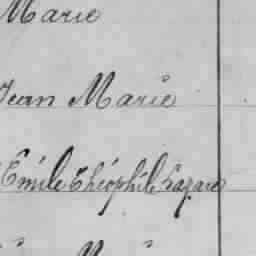 Marie
Jean Marie
Emile Théophile Lazare